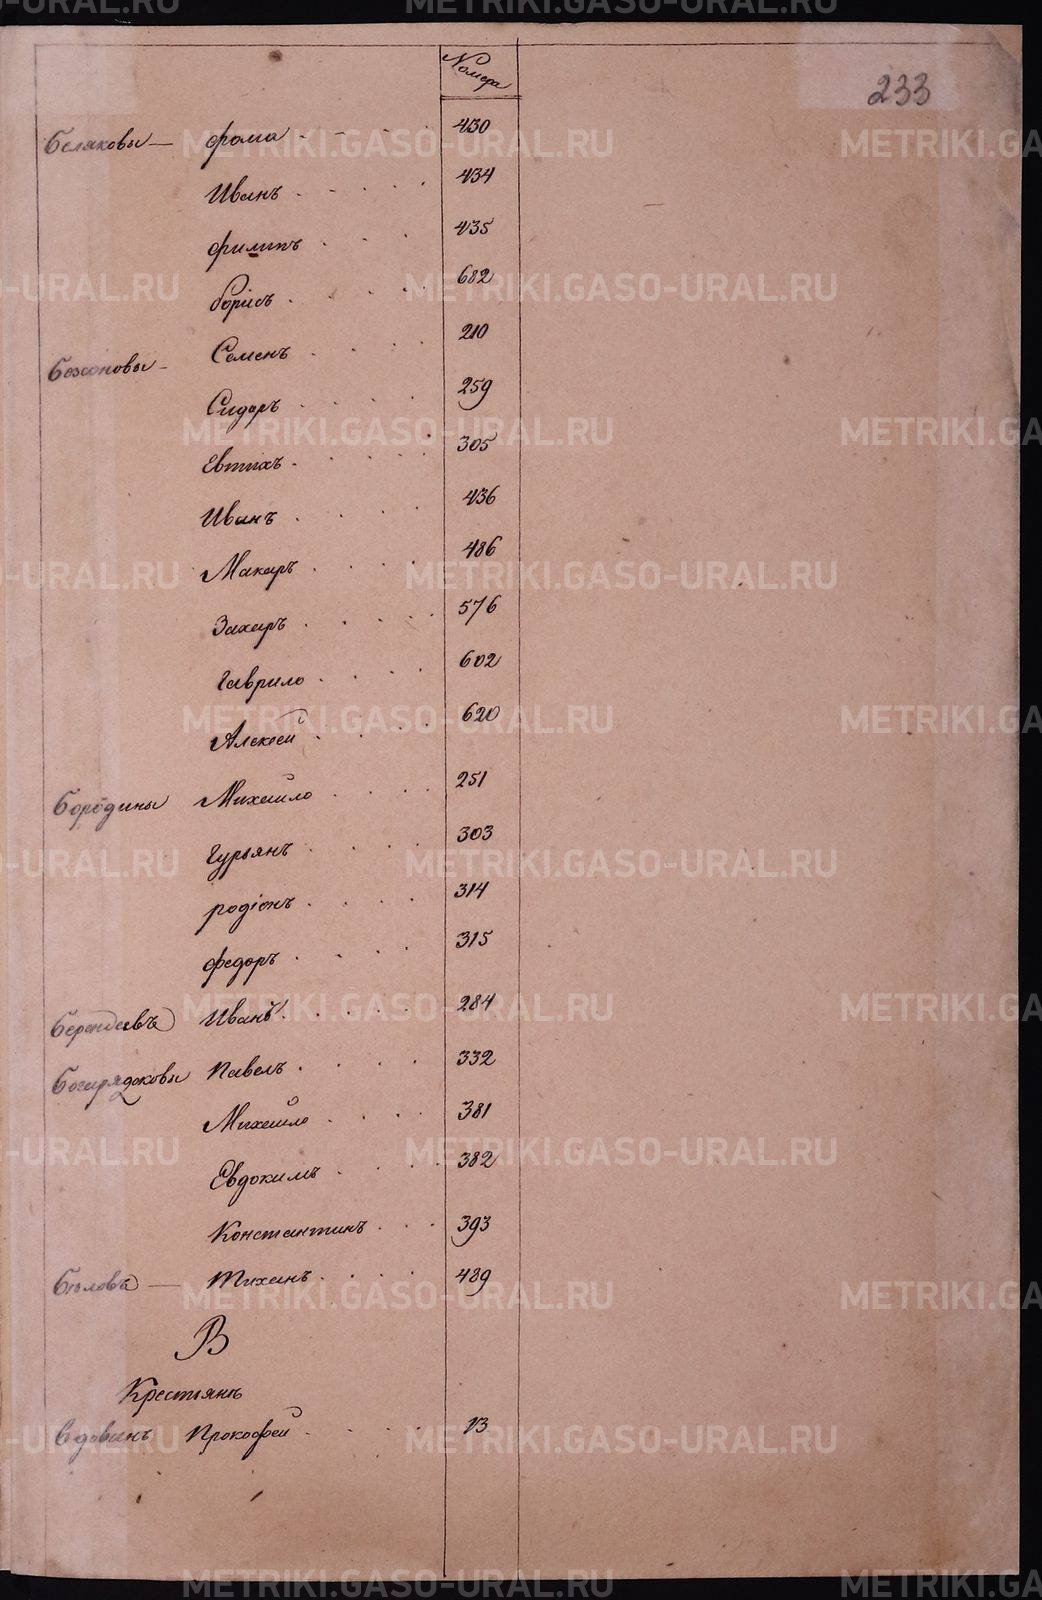 Номера
233
Беляковы — фома 430
Иванъ 434
филипъ 435
борисъ 682
Безсоновы - Семенъ 210
Сидоръ 259
Евтихъ 305
Иванъ 436
Макаръ 486
Захаръ 576
Гаврило 602
Алексей 620
Бородины Михайло 251
Гурьянъ 303
родіонъ 314
федоръ 315
Берендеевъ Иванъ 284
Павелъ 332
Михайло 381
Евдокимъ 382
Константинъ 393
Бѣловъ — Тиханъ 489
В
Крестьянъ
Вдовинъ Прокофей 13
METRIKI.GASO-URAL.RU